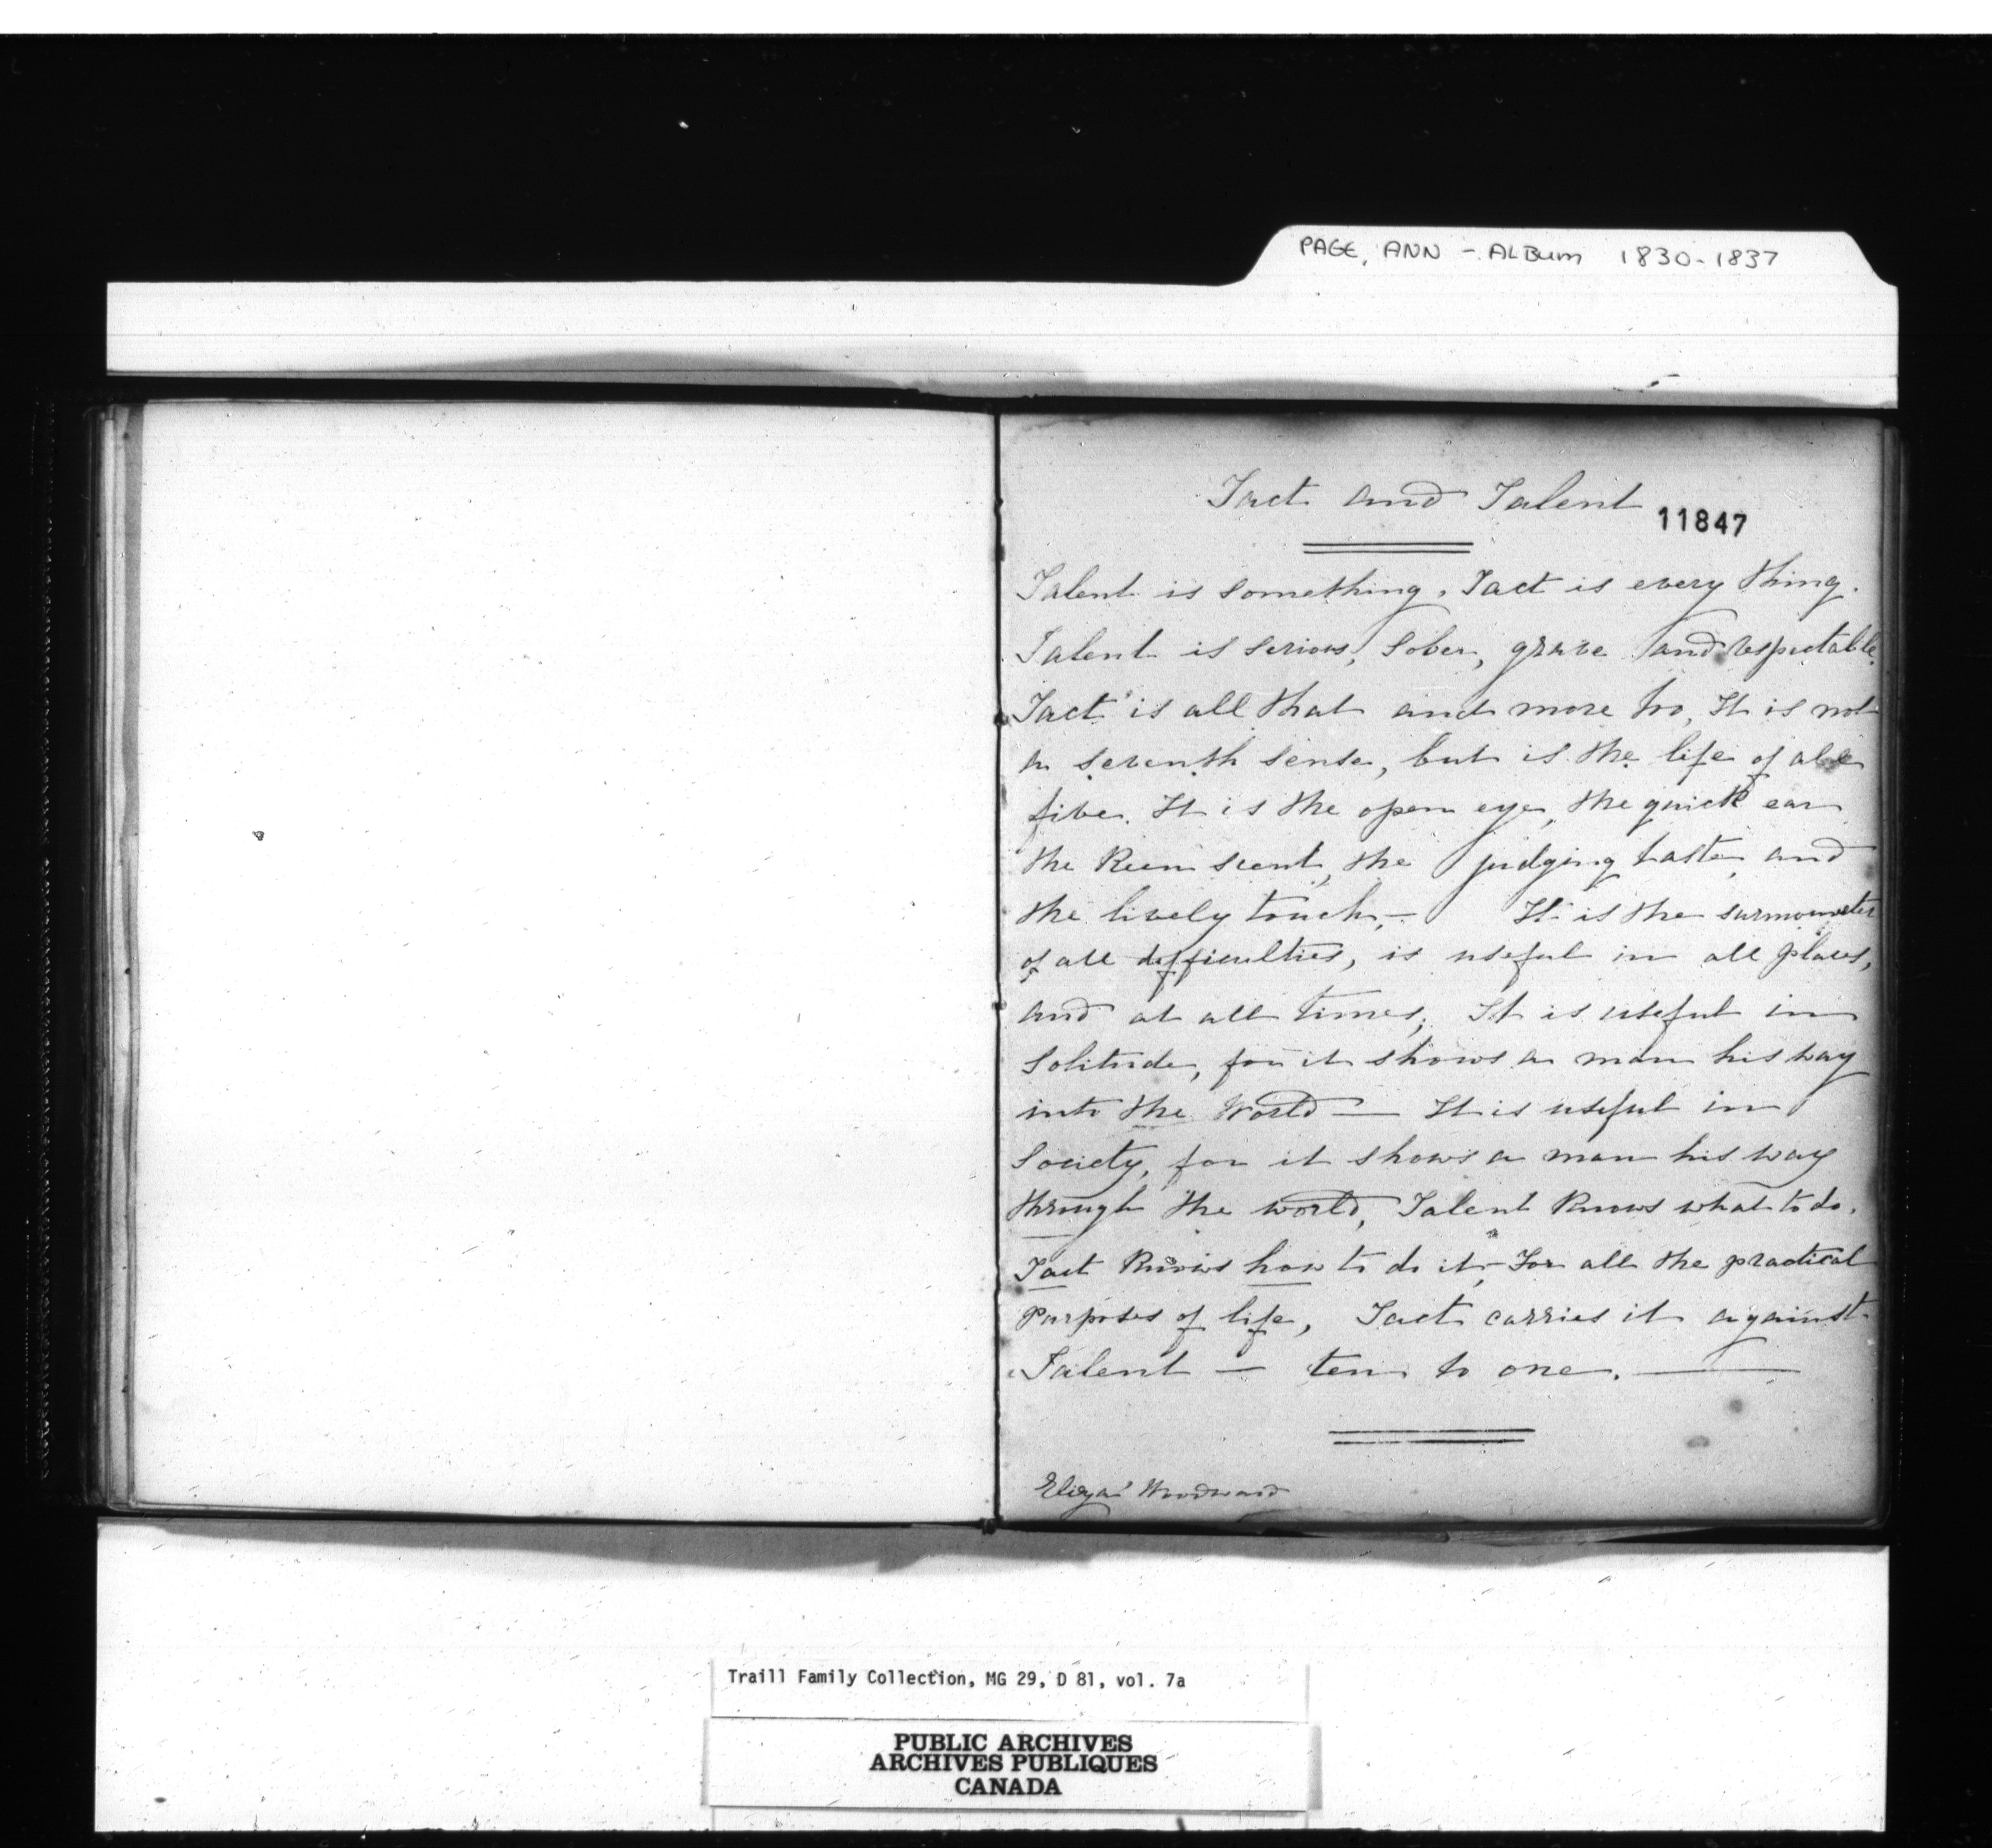 PAGE, ANN - ALBUM 1830-1837
Tact and Talent
11847
Talent is something, Tact is every thing.
Talent is serious, sober, grave and respectable.
Tact is all that and more too, It is not
a seventh sense, but is the life of all
five. It is the open eye, the quick ear
the keen scent, the judging taste, and
the lively touch,— It is the surmounter
of all difficulties, is useful in all places,
and at all times; It is useful in
Solitude, for it shows a man his way
into the World — It is useful in
Society, for it shows a man his way
through the world, Talent knows what to do.
Tact knows how to do it,— For all the practical
Purposes of life, Tact carries it against
Talent — ten to one. —
Eliza Woodward
Traill Family Collection, MG 29, D 81, vol. 7a
PUBLIC ARCHIVES
ARCHIVES PUBLIQUES
CANADA